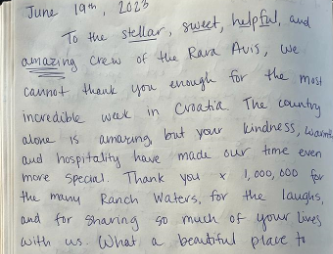 June 19th, 2023
To the stellar, sweet, helpful, and
amazing crew of the Rara Avis, we
cannot thank you enough for the most
incredible week in Croatia. The country
alone is amazing, but your kindness, warmth
and hospitality have made our time even
more special. Thank you x 1,000,000 for
the many Ranch Waters, for the laughs,
and for sharing so much of your lives
with us. What a beautiful place to